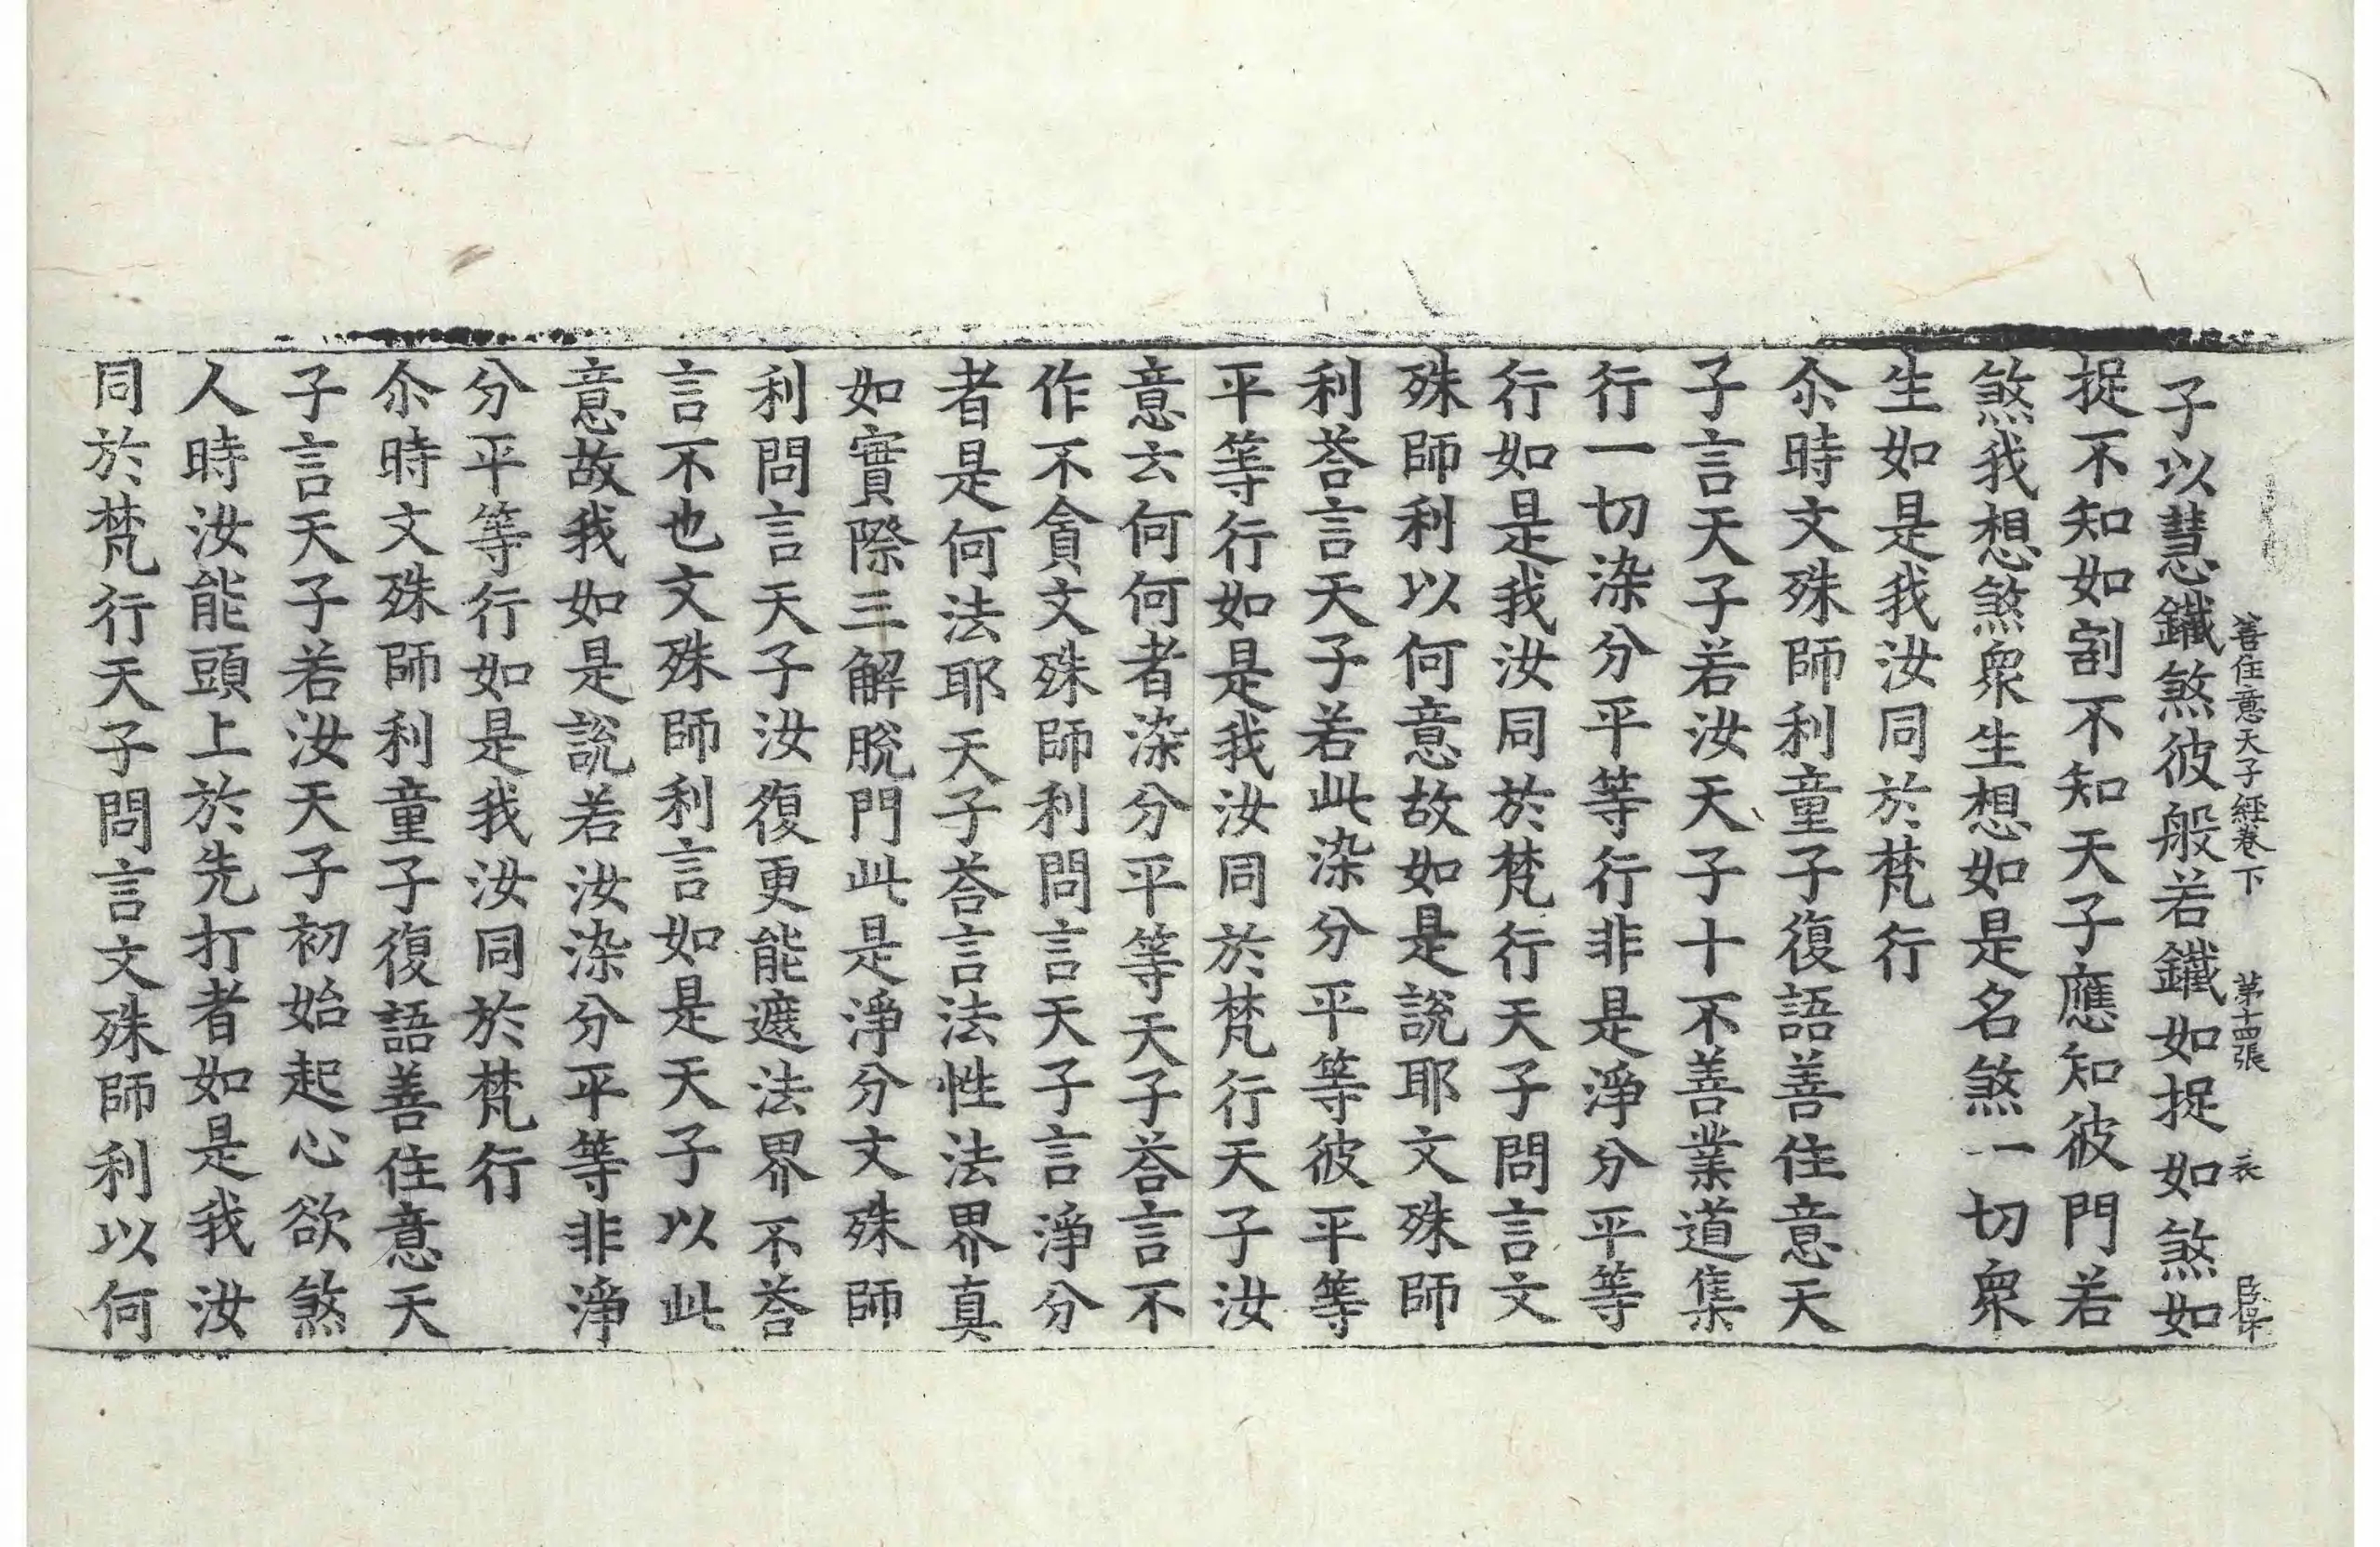 善住意天子經卷下　第十四張　長　臣保
子以慧鐵煞彼般若鐵如捉如煞如
捉不知如割不知天子應知彼門若
煞我想煞衆生想如是名煞一切衆
生如是我汝同於梵行
尒時文殊師利童子復語善住意天
子言天子若汝天子十不善業道集
行一切染分平等行非是淨分平等
行如是我汝同於梵行天子問言文
殊師利以何意故如是說耶文殊師
利荅言天子若此染分平等彼平等
平等行如是我汝同於梵行天子汝
意云何何者染分平等天子荅言不
作不貪文殊師利問言天子言淨分
者是何法耶天子荅言法性法界真
如實際三解脫門此是淨分文殊師
利問言天子汝復更能遮法界不荅
言不也文殊師利言如是天子以此
意故我如是說若汝染分平等非淨
分平等行如是我汝同於梵行
尒時文殊師利童子復語善住意天
子言天子若汝天子初始起心欲煞
人時汝能頭上於先打者如是我汝
同於梵行天子問言文殊師利以何